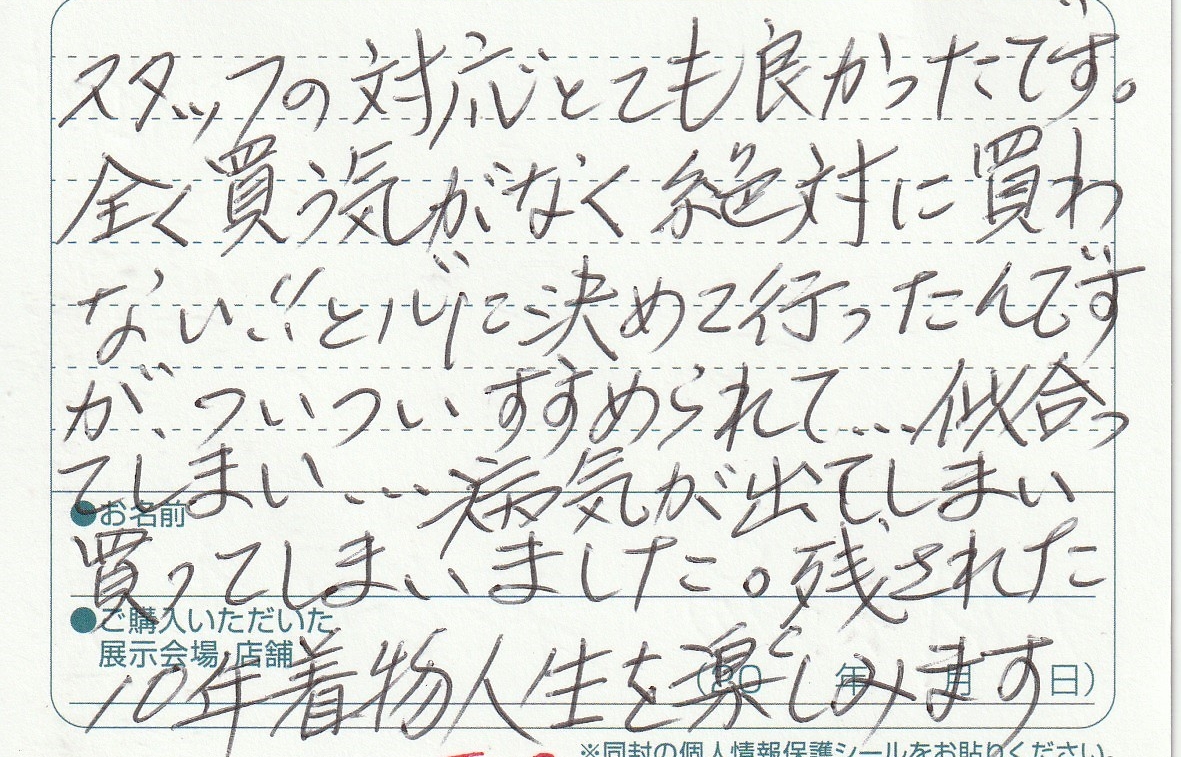 スタッフの対応とても良かったです。
全く買う気がなく絶対に買わ
ない!!と心に決めて行ったんです
が、ついついすすめられて…似合っ
てしまい…病気が出てしまい
●お名前
買ってしまいました。残された
●ご購入いただいた
展示会場 店舗
10年着物人生を楽しみます
(20 年 月 日)
※同封の個人情報保護シールをお貼りください。